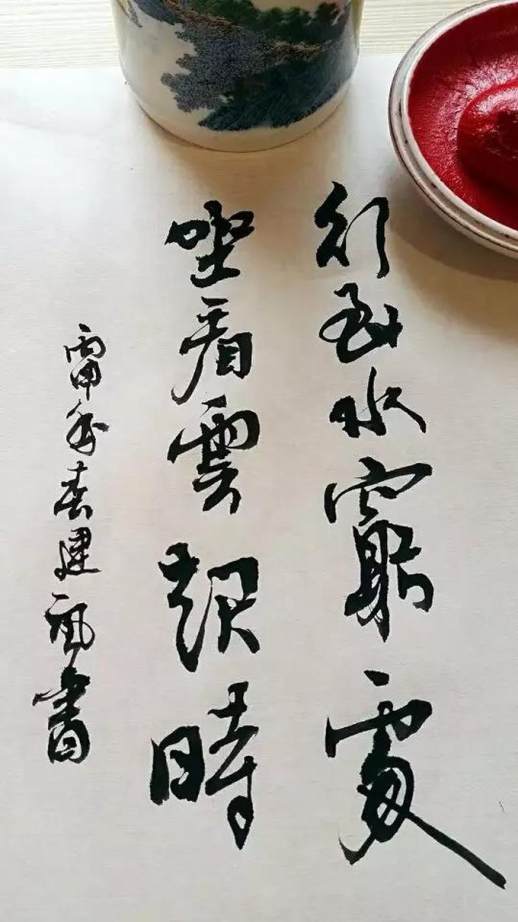 行到水窮處
坐看雲起時
丙申年春建風書